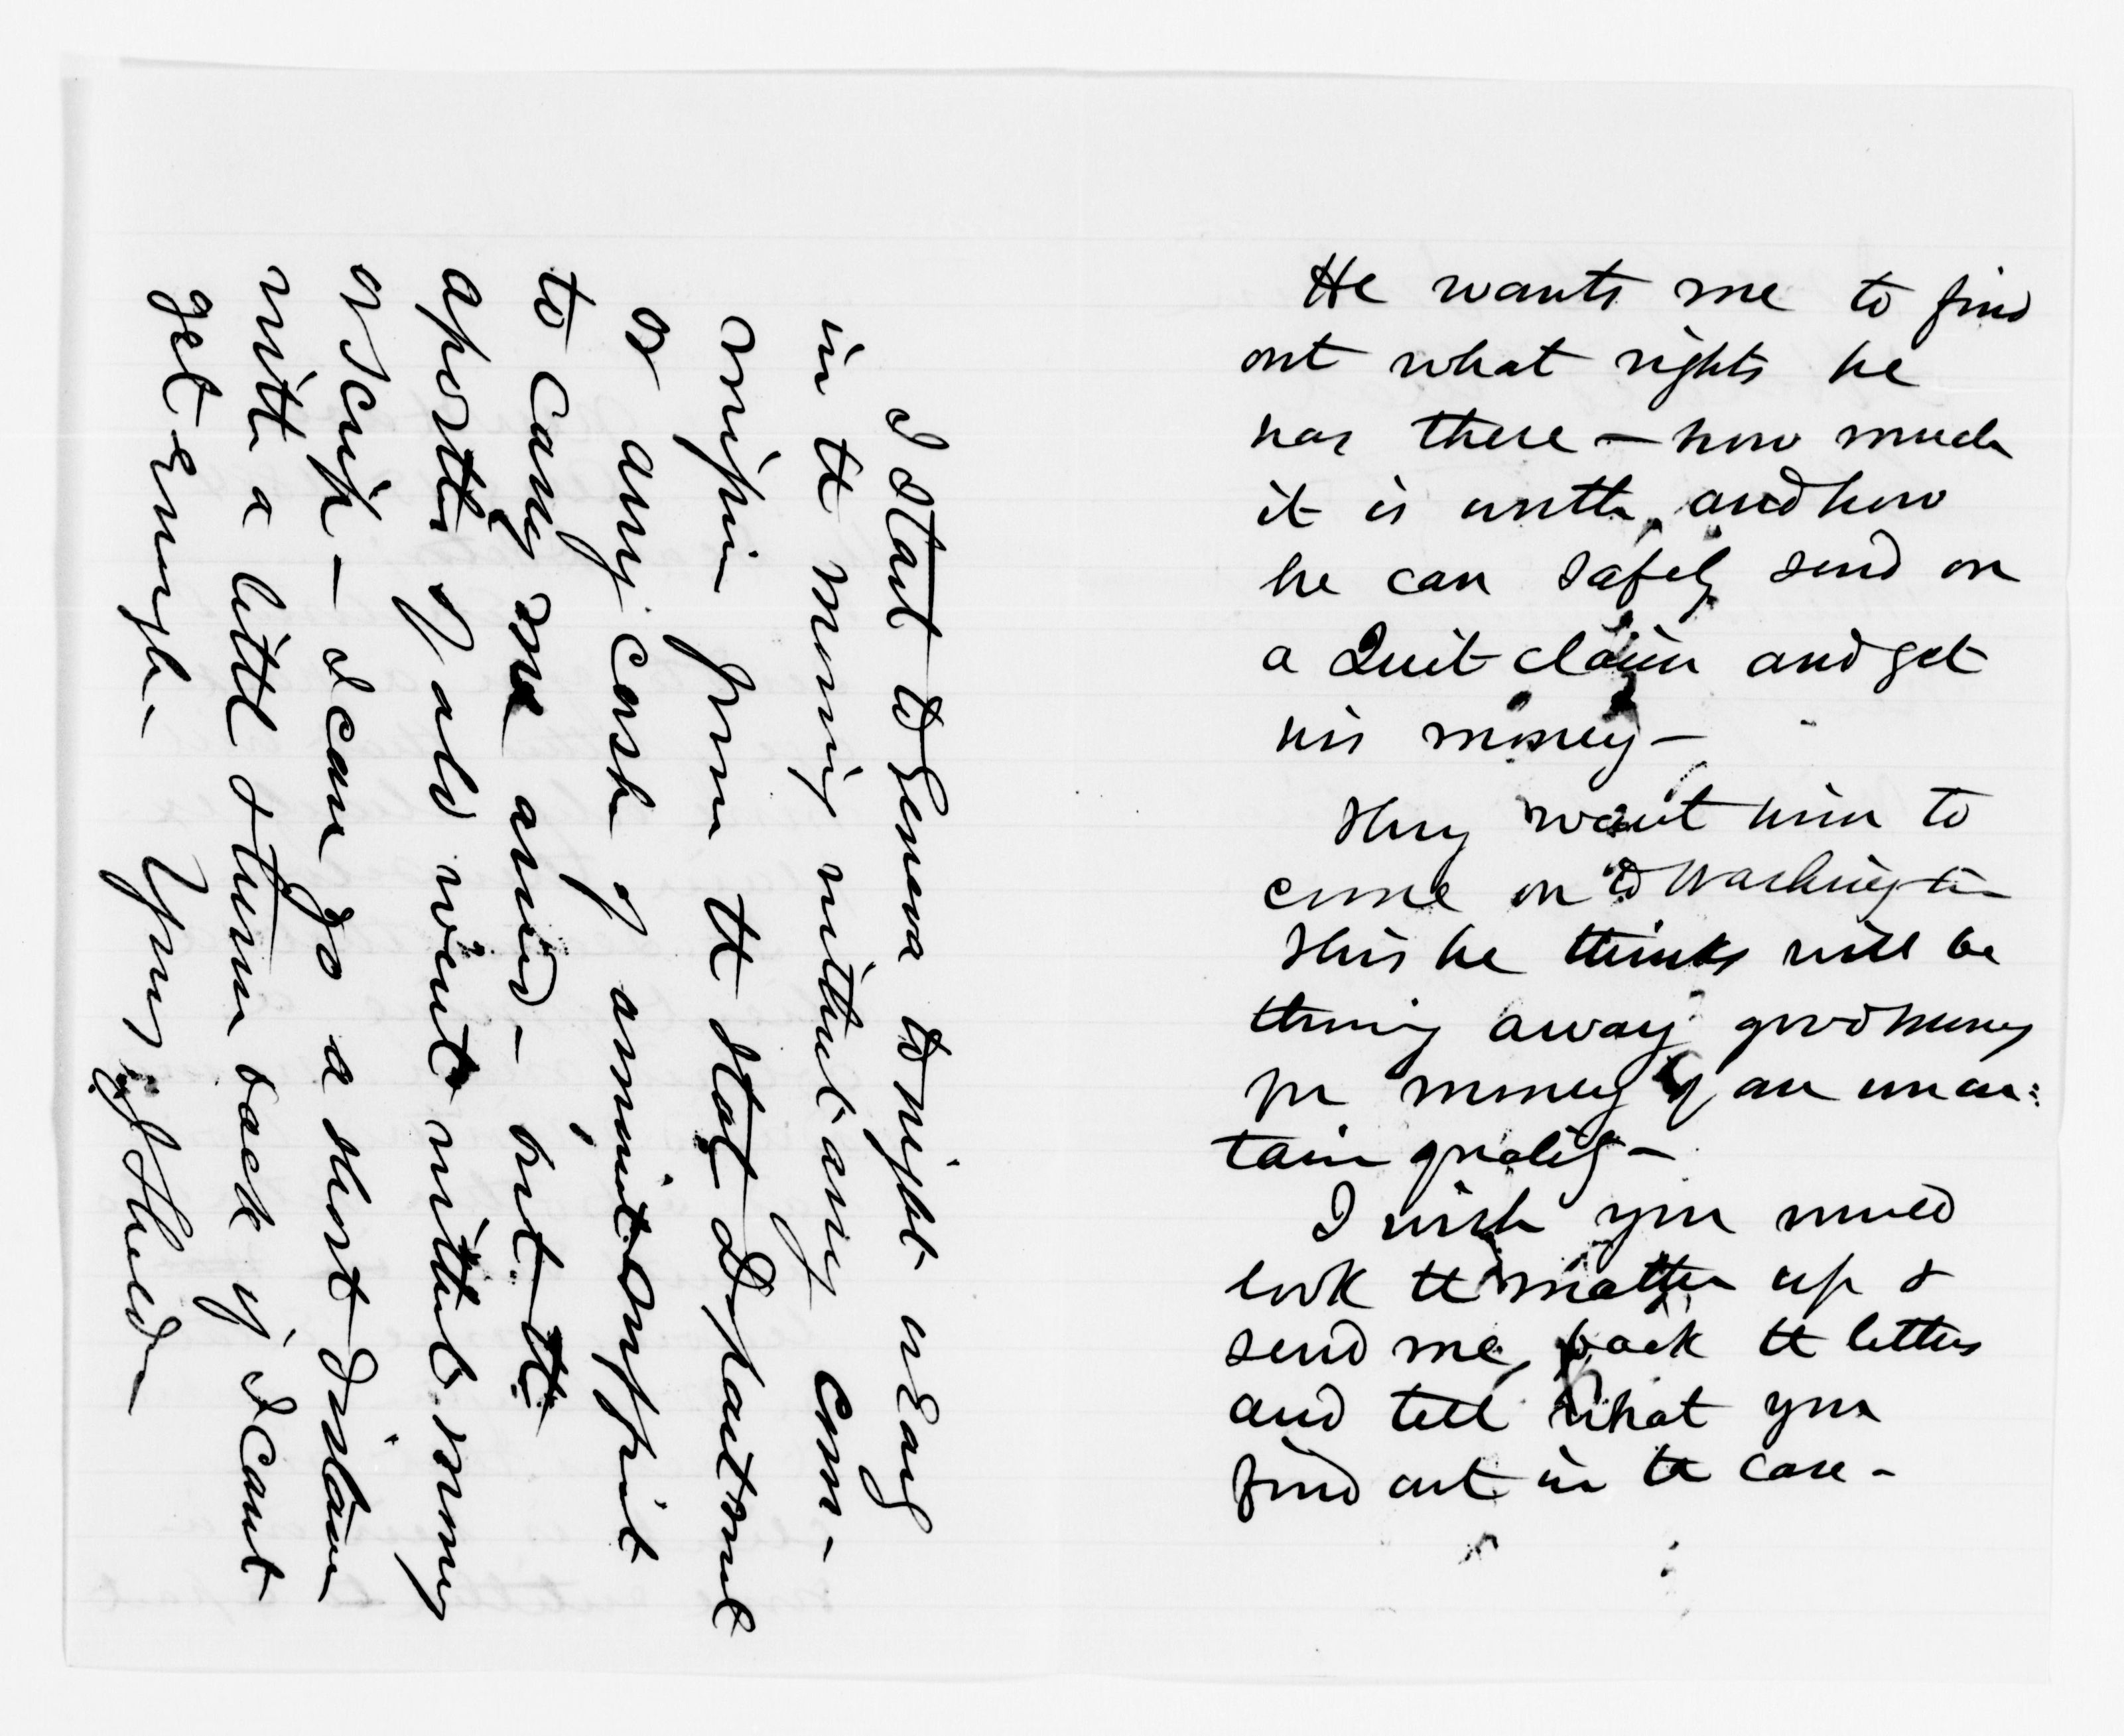 He wants me to find
out what rights he
has there — how much
it is worth, and how
he can safely send on
a Quit claim and get
his money —
They want him to
come on to Washington
This he thinks will be
throwing away good money
for money of an uncer=
tain quality —
I wish you would
look the matter up &
send me back the letters
and tell what you
find out in the case —
I start to Geneva to night or Early
in the morning without any com-
mission from the State Department
or any cash of amount sufficient
to carry me around — but the
apostles of old went without money
or scrip — I can go a short distance
with a little & turn back if I cant
get Enough — Yours Sheldon